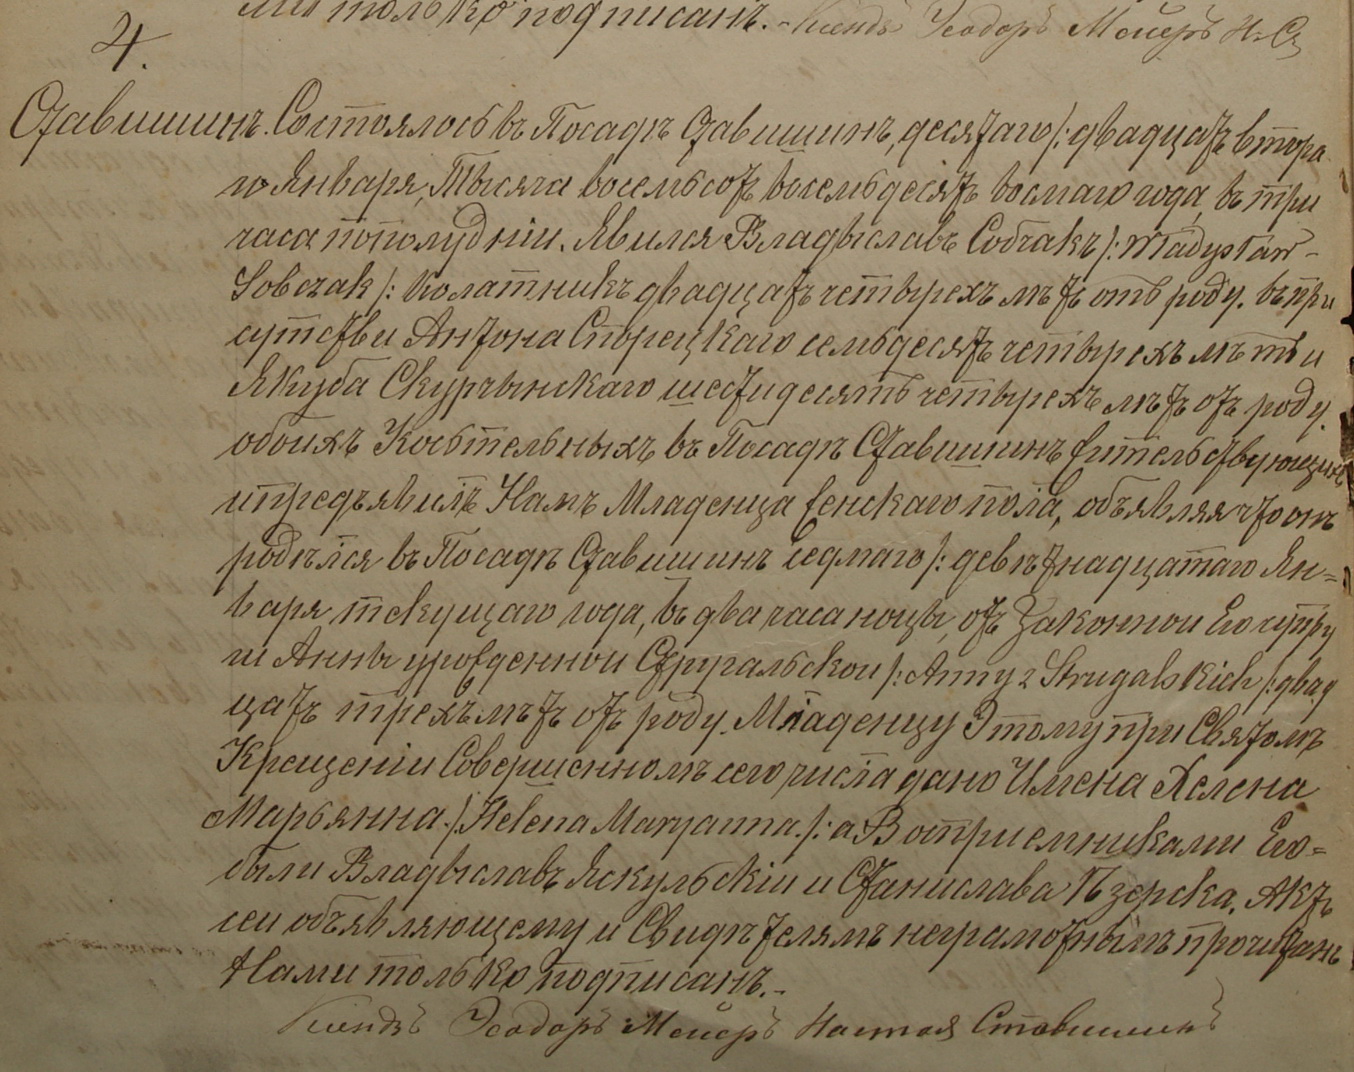 ми только подписанъ. - Ксендзъ Теодоръ Мейеръ Н. С
4.
Ставишинъ. Состоялось въ Посадѣ Ставишинъ, десятаго /: двадцать второ
го Января, Тысяча восемьсотъ восемьдесятъ восмаго года, въ три
часа пополудніи. Явился Владыславъ Собчакъ /: Władysław -
Sobczak /: Колатникъ двадцать четырехъ лѣтъ отъ роду. въ при
сутствіи Антона Сторецкаго семьдесятъ четырехъ лѣтъ и
Якуба Скурчынскаго шестидесятъ четырехъ лѣтъ отъ роду.
обоихъ Косьтельныхъ въ Посадѣ Ставишинъ жительствующихъ
и предъявилъ Намъ Младенца женскаго пола, объявляя что онъ
родился въ Посадѣ Ставишинъ седмаго /: девѣтнадцатаго Ян=
варя текущаго года, въ два часа ноцы, отъ Законнои Его супру
ги Анны урожденнои Стругальскои /: Anny z Strugalskich /: двад
цать трехъ лѣтъ отъ роду. Младенцу Этому при Святомъ
Крещеніи Совершенномъ сего числа дано Имена Хелена
Марьянна. /: Helena Maryanna. /: а Восприемниками Его=
были Владыславъ Яскульскіи и Станислава Пзерска. Актъ
сеи объявляющему и Свидѣтелямъ неграмотнымъ прочитанъ
Нами только подписанъ. -
Ксендзъ Теодоръ Мейеръ Настоя Ставишинъ